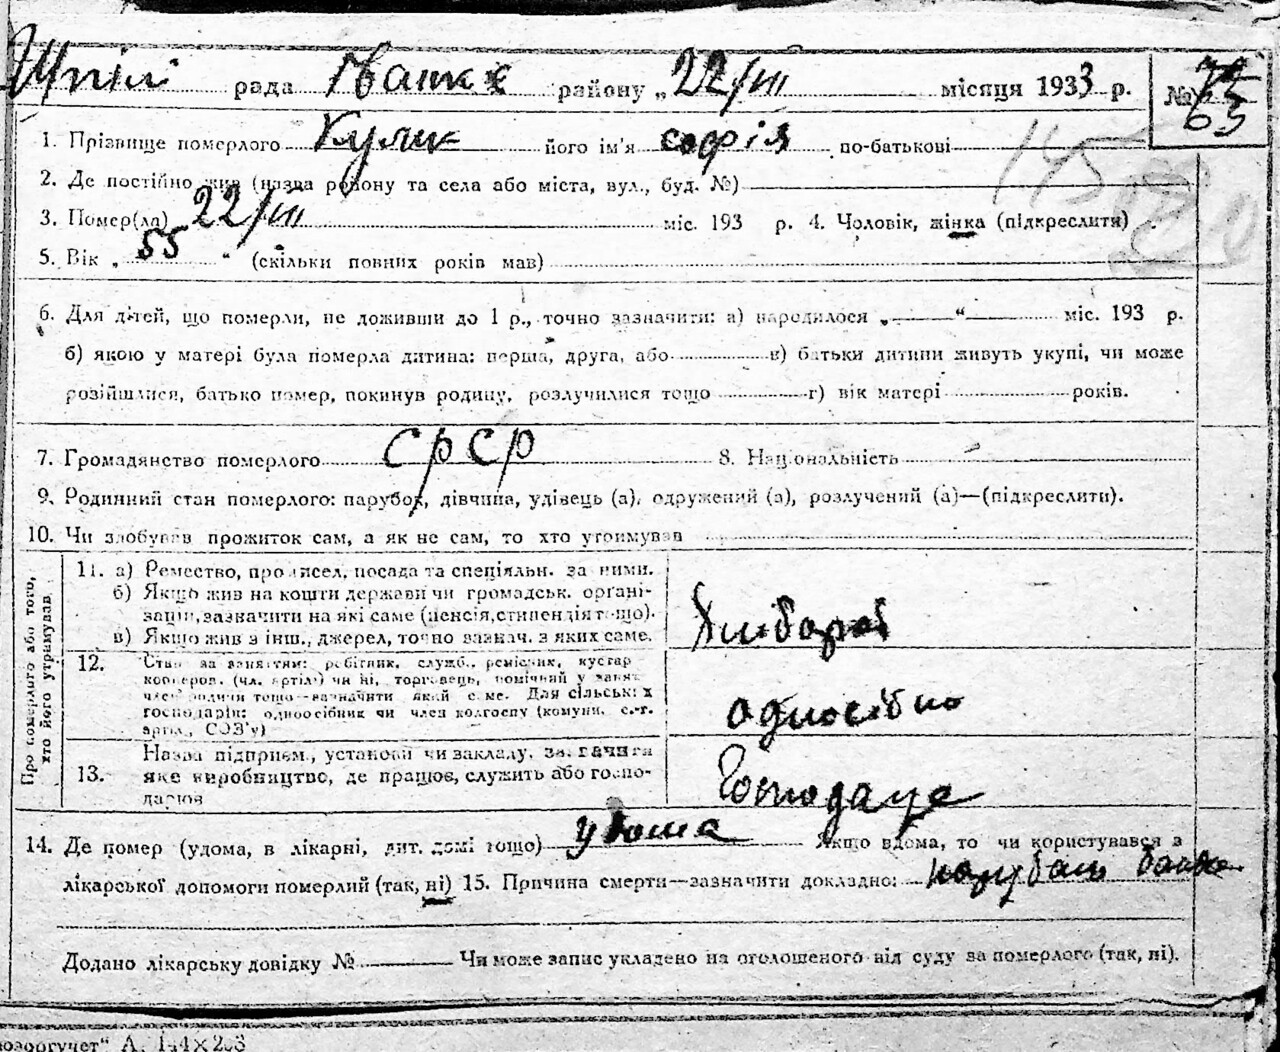 Шпілі рада Іванк. району „ 22/VIII місяця 1933 р. № 65
145
1. Прізвище померлого Кулик його ім'я софія по-батькові
2. Де постійно жив (назва району та села або міста, вул., буд. №)
3. Помер(ла) 22/VIII міс. 193 р. 4. Чоловік, жінка (підкреслити)
5. Вік „ 55 “ (скільки повних років мав)
6. Для дітей, що померли, не доживши до 1 р., точно зазначити: а) народилося „ “ міс. 193 р.
б) якою у матері була померла дитина: перша, друга, або в) батьки дитини живуть укупі, чи може
розійшлися, батько помер, покинув родину, розлучилися тощо г) вік матері років.
7. Громадянство померлого СРСР 8. Національність
9. Родинний стан померлого: парубок, дівчина, удівець (а), одружений (а), розлучений (а)—(підкреслити).
10. Чи здобував прожиток сам, а як не сам, то хто утримував
Про померлого або того, хто його утримував
11. а) Ремество, промисел, посада та спеціяльн. за ними.
б) Якщо жив на кошти держави чи громадськ. органі-
зації, зазначити на які саме (пенсія, стипендія тощо).
в) Якщо жив з інш., джерел, точно зазнач. з яких саме.
Хлібороб
12. Стан за заняттям: робітник, служб., ремісник, кустар
кооперов. (чл. артілі) чи ні, торговець, помічний у занят.
член родини тощо—зазначити який саме. Для сільських
господарів: одноосібник чи член колгоспу (комуни, с.-г.
артіл., СОЗ'у)
односібно
13. Назва підприєм., установи чи закладу, зазначити
яке виробництво, де працює, служить або госпо-
дарює
14. Де помер (удома, в лікарні, дит. домі тощо) удома Якщо вдома, то чи користувався з
лікарської допомоги померлий (так, ні) 15. Причина смерти—зазначити докладно:
Додано лікарську довідку № Чи може запис укладено на оголошеного від суду за померлого (так, ні).
А. 144×203